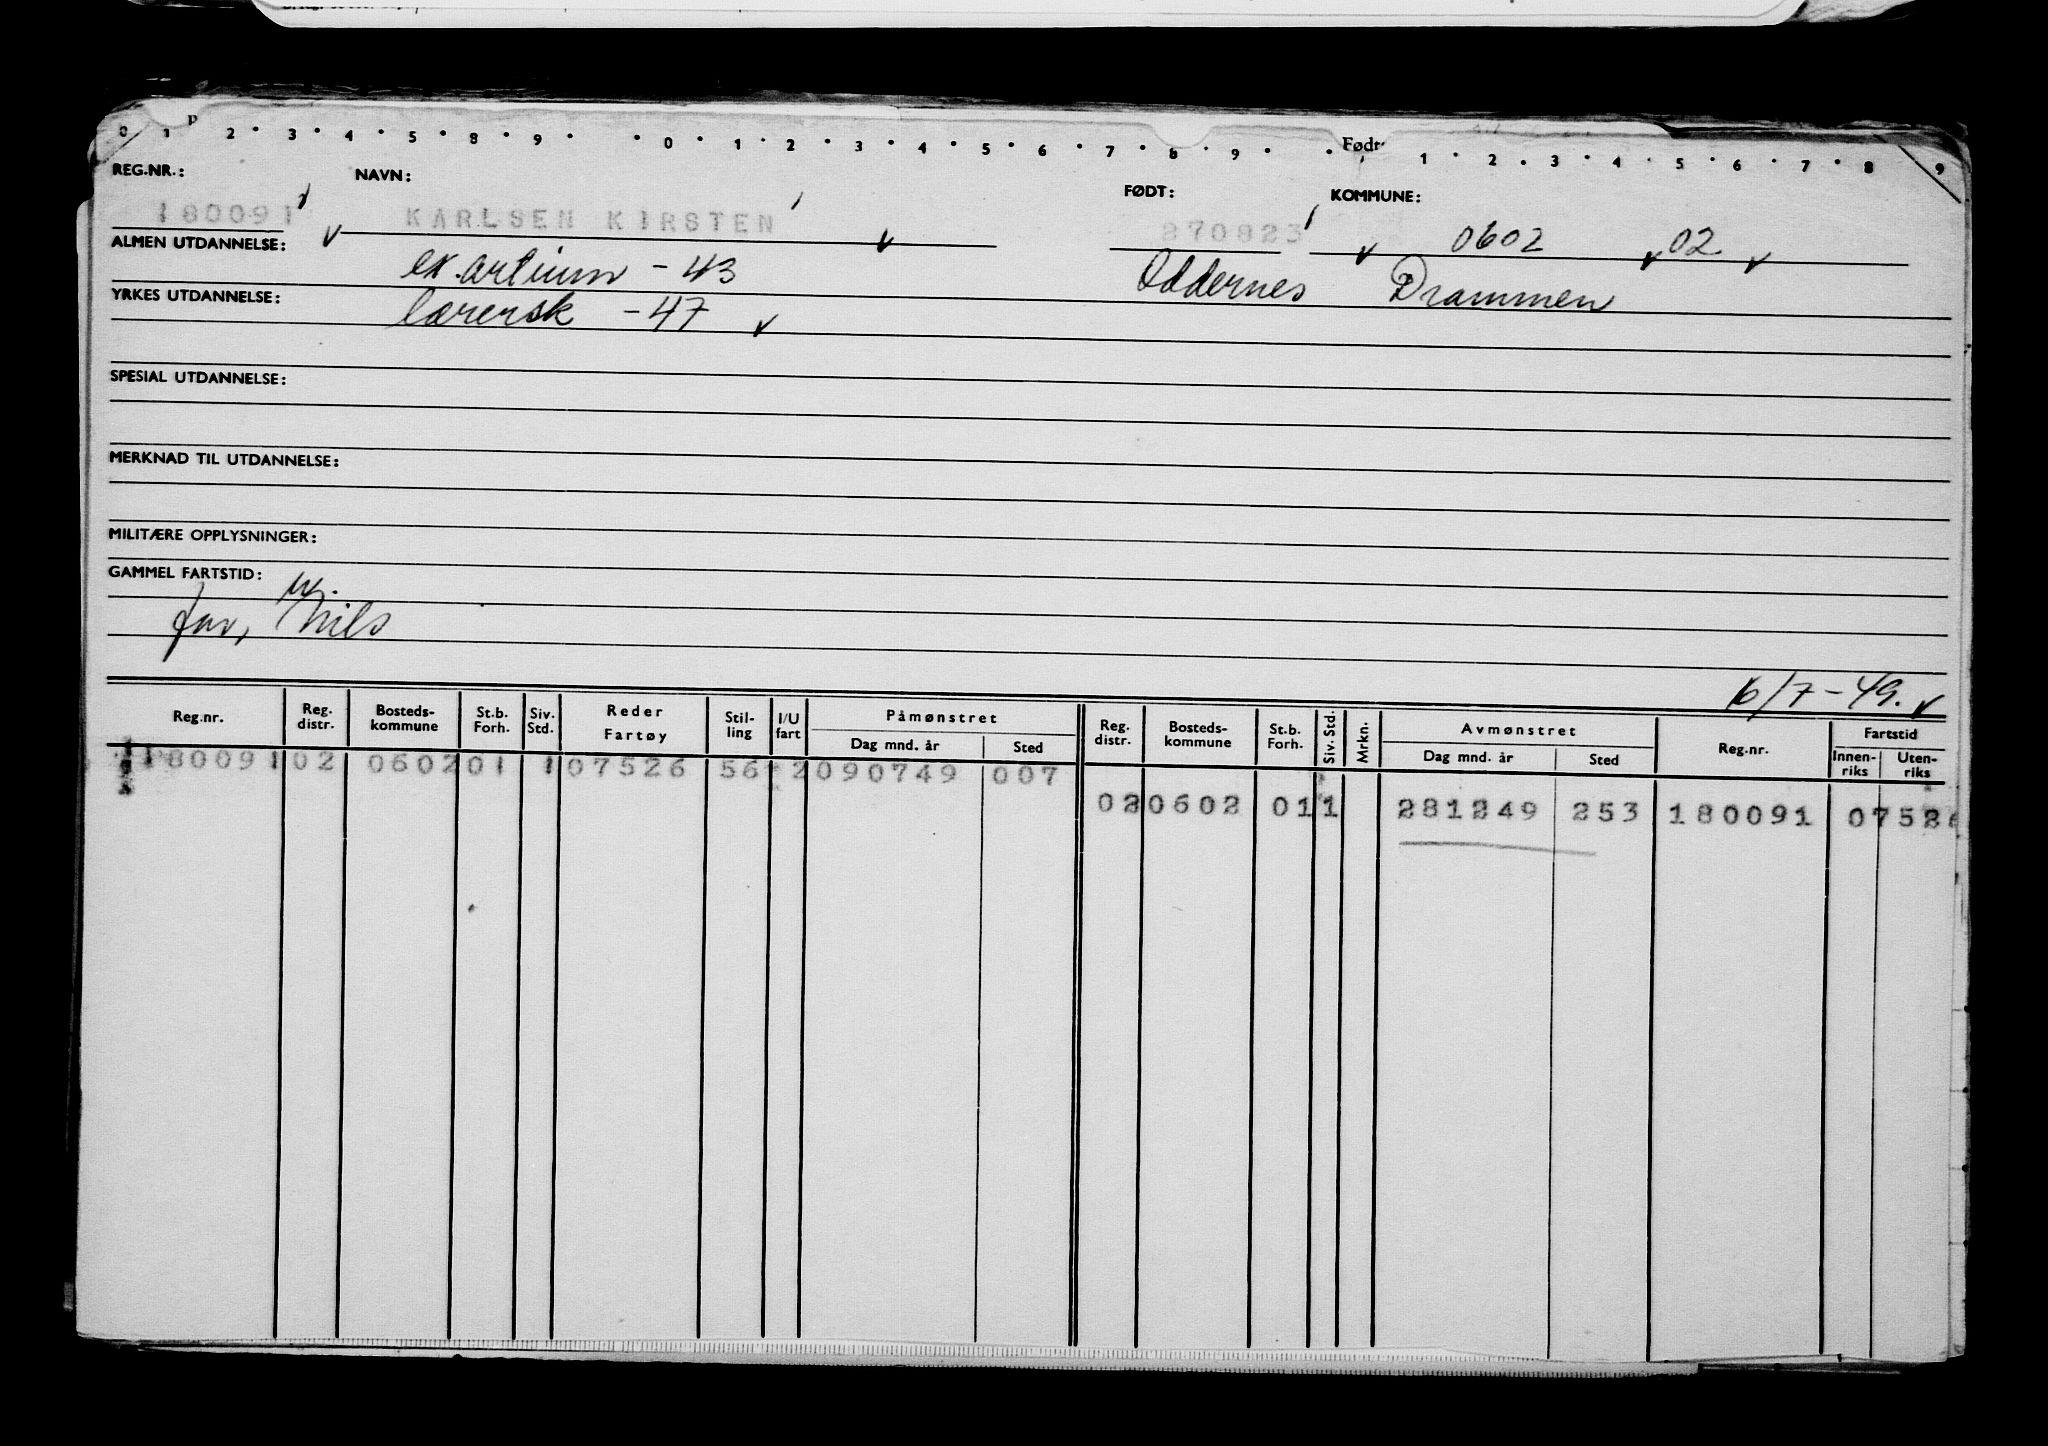 0 1 2 3 4 5 8 9 0 1 2 3 4 5 6 7 8 9 Født: 1 2 3 4 5 6 7 8 9
REG.NR.: NAVN: FØDT: KOMMUNE:
180091 KARLSEN KIRSTEN 270823 0602 02
ALMEN UTDANNELSE: ex. artium - 43 Oddernes Drammen
YRKES UTDANNELSE: lærersk - 47
SPESIAL UTDANNELSE:
MERKNAD TIL UTDANNELSE:
MILITÆRE OPPLYSNINGER:
GAMMEL FARTSTID:
far, Nils
6/7-49.
Reg.nr. Reg. distr. Bosteds-kommune St.b. Forh. Siv. Std. Reder Fartøy Stil-ling I/U fart Påmønstret Dag mnd. år Sted Reg. distr. Bosteds-kommune St.b. Forh. Siv. Std. Mrkn. Avmønstret Dag mnd. år Sted Reg.nr. Fartstid Innen-riks Uten-riks
180091 02 0602 01 1 07526 56 2 090749 007
02 0602 01 1 281249 253 180091 07526